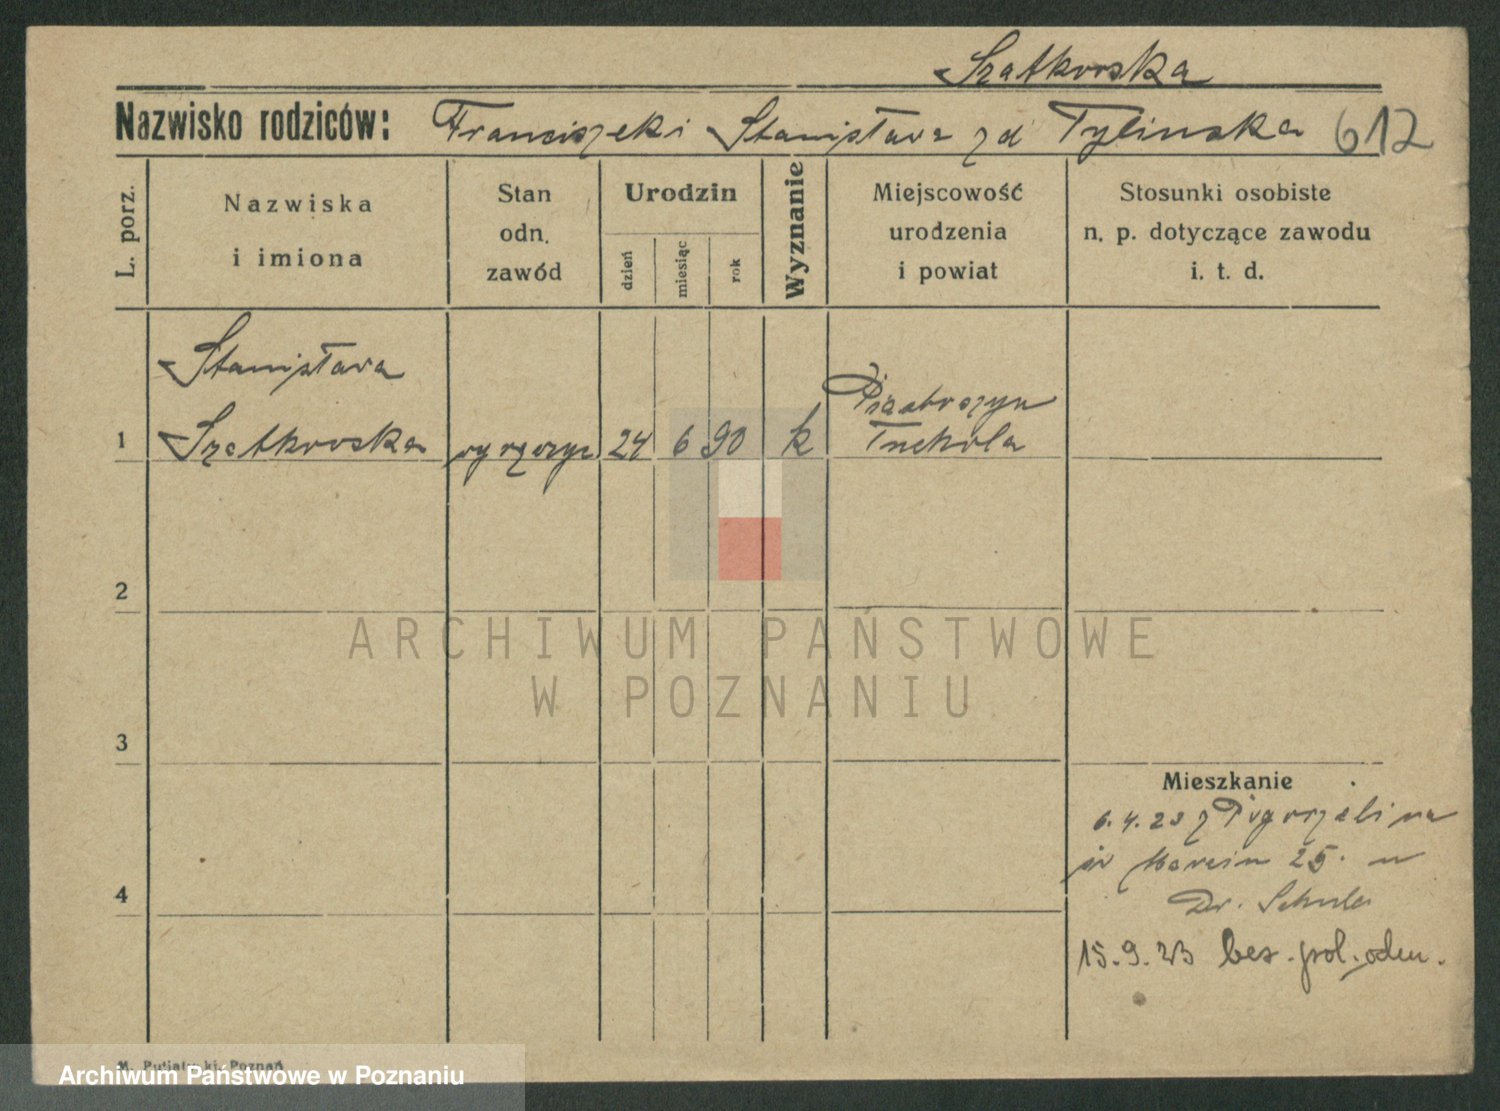 Szatkowska
Nazwisko rodziców: Franciszek i Stanisława zd Tylinska 612
L. porz.
Nazwiska
i imiona
Stan
odn.
zawód
Urodzin
dzień
miesiąc
rok
Wyznanie
Miejscowość
urodzenia
i powiat
Stosunki osobiste
n. p. dotyczące zawodu
i. t. d.
Stanisława
1 Szatkowska 24 6 90 k
Tuchola
2
3
4
Mieszkanie
6.4.23 z Pogorzeli na
św Marcin 25. u
Dr. Schulz
15.9.23 bez. pol. odm.
ARCHIWUM PAŃSTWOWE
W POZNANIU
M. Putiatycki, Poznań
Archiwum Państwowe w Poznaniu